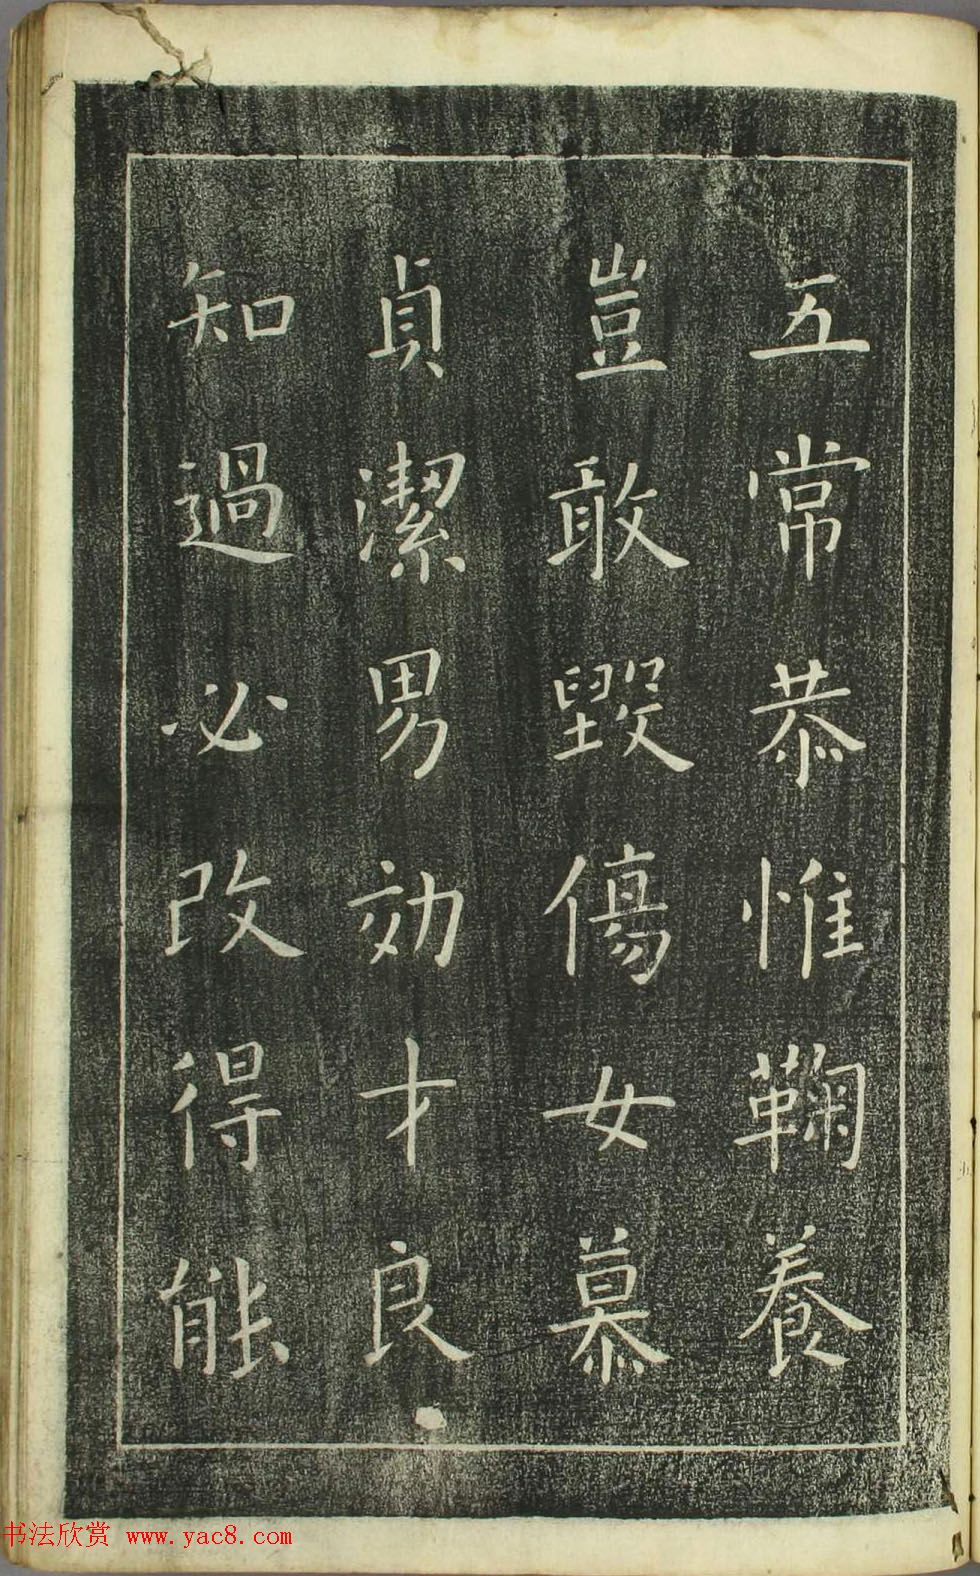 五常恭惟鞠養
豈敢毀傷女慕
貞潔男効才良
知過必改得能
书法欣赏 www.yac8.com